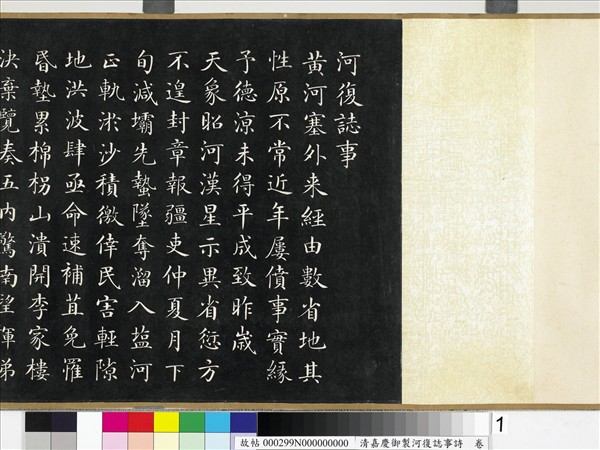 河復誌事
黃河塞外來經由數省地其
性原不常近年屢僨事實緣
予德涼未得平成致昨歲
天象昭河漢星示異省愆方
不遑封章報疆吏仲夏月下
旬減壩先蟄墜奪溜入塩河
正軌淤沙積徼倖民害輕隙
地洪波肆亟命速補苴免罹
昏墊累棉拐山潰開李家樓
決棄覽奏五內驚南望揮涕
1
故帖 000299N000000000 清嘉慶御製河復誌事詩 卷